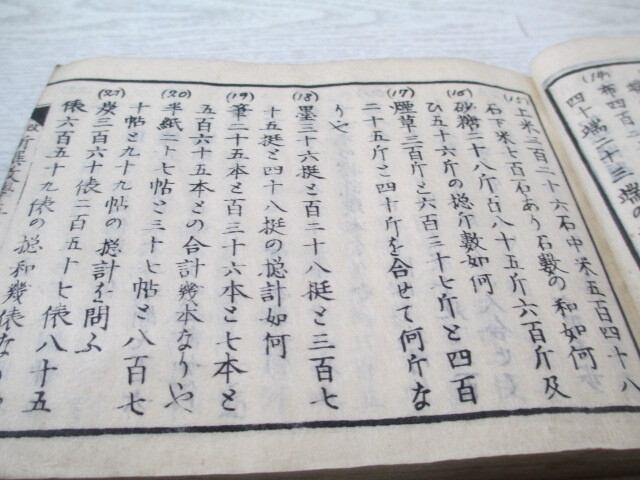 (14)布四百
四十端二十三端の
(15)上米三百二十六石中米五百四十八
石下米七百石あり石数の和如何
(16)砂糖二十八斤百八十五斤六百斤及
ひ五十六斤の惣斤數如何
(17)煙草三百斤と六百三十七斤と四百
二十五斤と四十斤を合せて何斤な
りや
(18)墨三十六挺と百二十八挺と三百七
十五挺と四十八挺の惣計如何
(19)筆二十五本と百三十六本と七本と
五百六十五本との合計幾本なりや
(20)半紙二十七帖と三十七帖と八百七
十帖と九十九帖の惣計を問ふ
(21)炭三百六十俵二百五十七俵八十五
俵六百五十九俵の惣和幾俵な